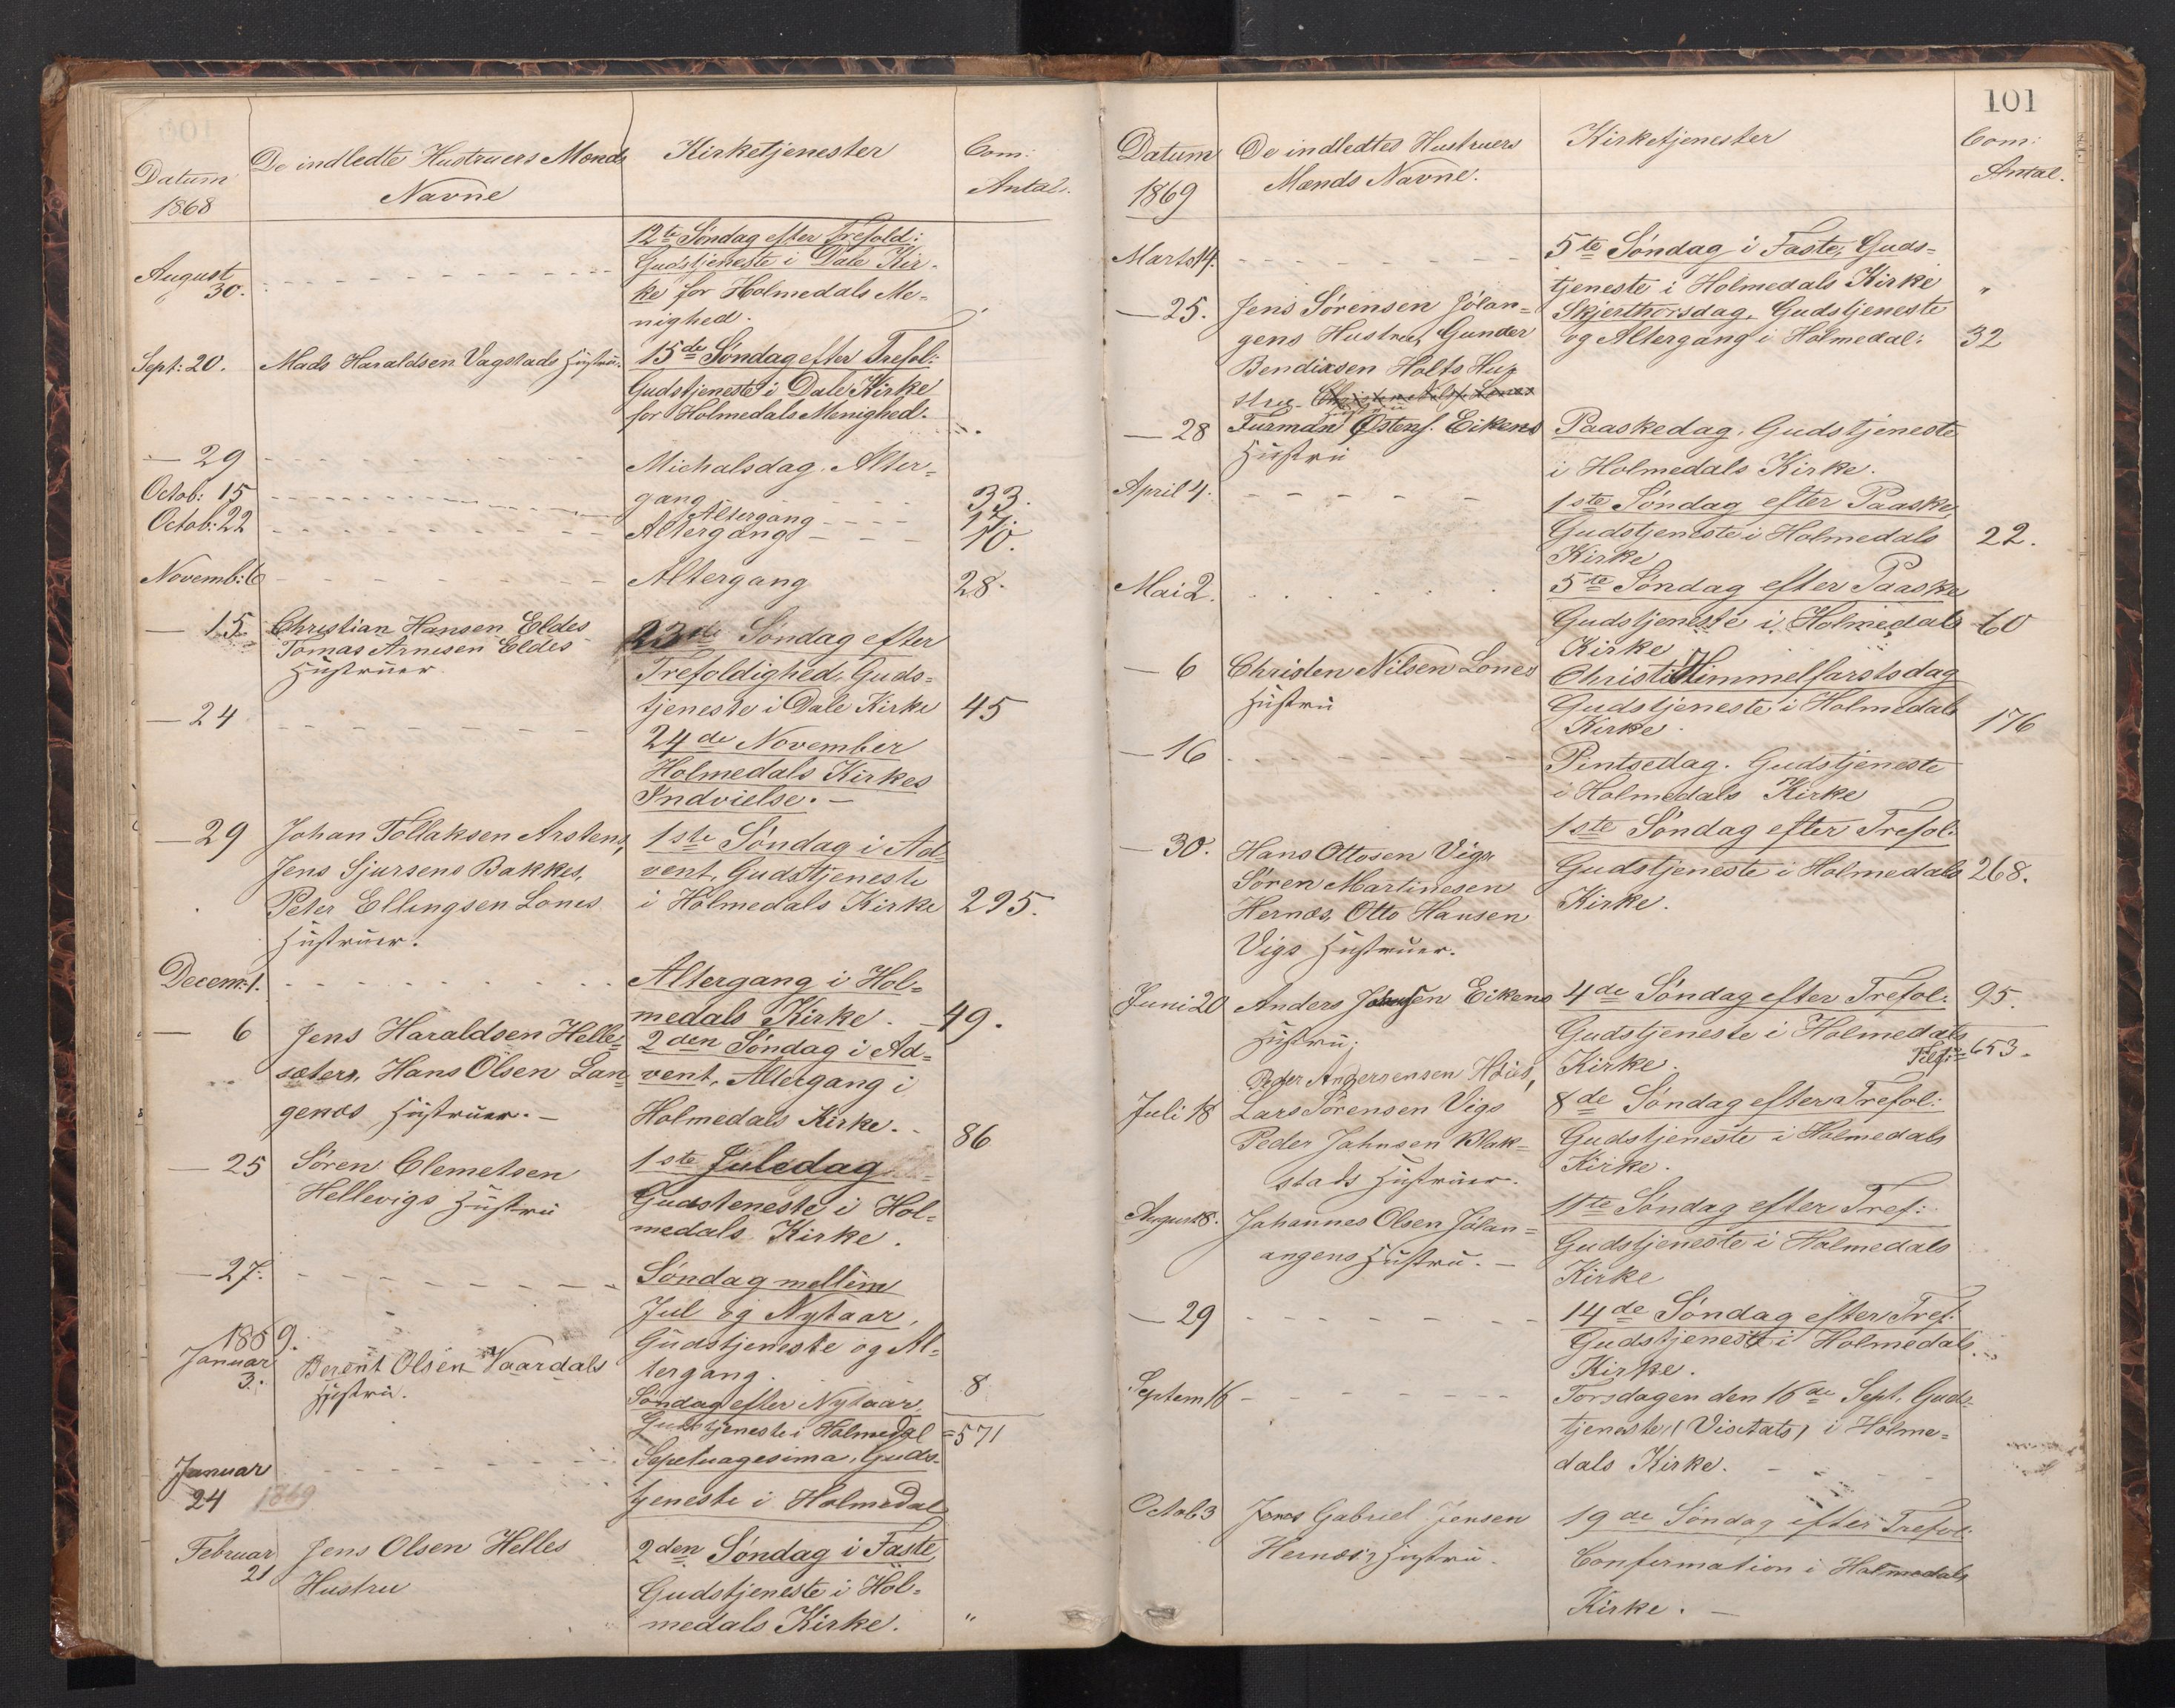 Datum
1868
De indledte Hustruers Mænds
Navne
Kirketjenester
Com:
Antal.
August
30.
12te Søndag efter Trefold:
Gudstjeneste i Dale Kir-
ke for Holmedals Me-
nighed.
Sept: 20.
Mads Haraldsen Vagstads Hustru.
15de Søndag efter Trefol:
Gudstjeneste i Dale Kirke
for Holmedals Menighed.
— 29
Michalsdag. Alter-
gang
33.
Octob: 15
Altergang
17.
Octob: 22
Altergang
10.
Novemb: 6
Altergang
28.
— 15
Christian Hansen Eldes
Tomas Arnesen Eldes
Hustruer
23de Søndag efter
Trefoldighed, Guds-
tjeneste i Dale Kirke
45
— 24
24de November
Holmedals Kirkes
Indvielse. —
— 29
Johan Tollaksen Arstens,
Jens Sjursens Bakkes,
Peter Ellingsen Lones
Hustruer.
1ste Søndag i Ad-
vent, Gudstjeneste
i Holmedals Kirke
295.
Decem: 1.
Altergang i Hol-
medals Kirke. —
49.
— 6
Jens Haraldsen Helle-
sæters, Hans Olsen Lan-
genæs Hustruer. —
2den Søndag i Ad-
vent, Altergang i
Holmedals Kirke.
86
— 25
Søren Clemetsen
Hellevigs Hustru
1ste Juledag
Gudsteneste i Hol-
medals Kirke.
— 27.
Søndag mellem
Jul og Nytaar,
Gudstjeneste og Al-
tergang.
8
1869.
Januar
3.
Berent Olsen Vaardals
Hustru.
Søndag efter Nytaar,
Gudstjeneste i Holmedal
=571
Januar
24 1869
Septuagesima, Guds-
tjeneste i Holmedal
Februar
21
Jens Olsen Helles
Hustru
2den Søndag i Faste
Gudstjeneste i Hol-
medals Kirke.
"
101
Datum
1869
De indledtes Hustruers
Mænds Navne.
Kirketjenester
Com:
Antal.
Marts 14.
5te Søndag i Faste, Guds-
tjeneste i Holmedals Kirke
"
— 25.
Jens Sørensen Jølan-
gens Hustru, Gunder
Bendixsen Holts Hu-
stru.
Skjerthorsdag, Gudstjeneste
og Altergang i Holmedal:
32
— 28
Furman Østens. Eikens
Hustru
Paaskedag. Gudstjeneste
i Holmedals Kirke.
April 4.
1ste Søndag efter Paaske,
Gudstjeneste i Holmedals
Kirke
22.
Mai 2.
5te Søndag efter Paaske
Gudstjeneste i Holmedals
Kirke
60
— 6
Christen Nilsen Lones
Hustru
Christi Himmelfartsdag
Gudstjeneste i Holmedals
Kirke.
176
— 16
Pintsedag. Gudstjeneste
i Holmedals Kirke
— 30.
Hans Ottosen Vigs
Søren Martinesen
Hernæs, Otto Hansen
Vigs Hustruer.
1ste Søndag efter Trefol:
Gudstjeneste i Holmedals
Kirke.
268.
Juni 20
Anders Johnsen Eikens
Hustru;
4de Søndag efter Trefol:
Gudstjeneste i Holmedals
Kirke.
95.
=653.
Juli 18
Peder Andersensen Høies,
Lars Sørensen Vigs
Peder Johnsen Blak-
stads Hustruer.
8de Søndag efter Trefol:
Gudstjeneste i Holmedals
Kirke.
August 8.
Johannes Olsen Jølan-
angens Hustru. —
11te Søndag efter Tref:
Gudstjeneste i Holmedals
Kirke
— 29
14de Søndag efter Tref:
Gudstjeneste i Holmedals
Kirke.
Septem 16
Torsdagen den 16de Sept. Guds-
tjeneste (Visitats) i Holme-
dals Kirke. —
Octob 3
Jens Gabriel Jensen
Hernæs's Hustru.
19de Søndag efter Trefol:
Confirmation i Holmedals
Kirke. —